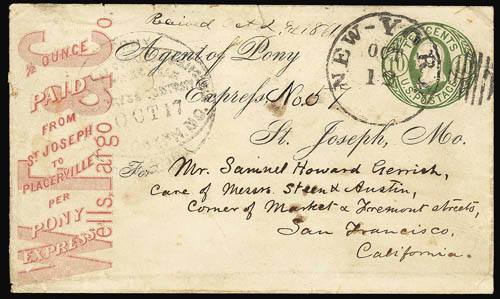 Received
Wells, Fargo & Co.
½ OUNCE
PAID
FROM
ST JOSEPH
TO
PLACERVILLE
PER
PONY
EXPRESS
OCT 17
NEW-Y
OCT
12
TEN CENTS
10
U.S. POSTAGE
Agent of Pony
Express No. 57
St. Joseph, Mo.
For Mr. Samuel Howard Gerrish,
Care of Messrs. Steen & Austin,
Corner of Market & Fremont streets,
San Francisco,
California.